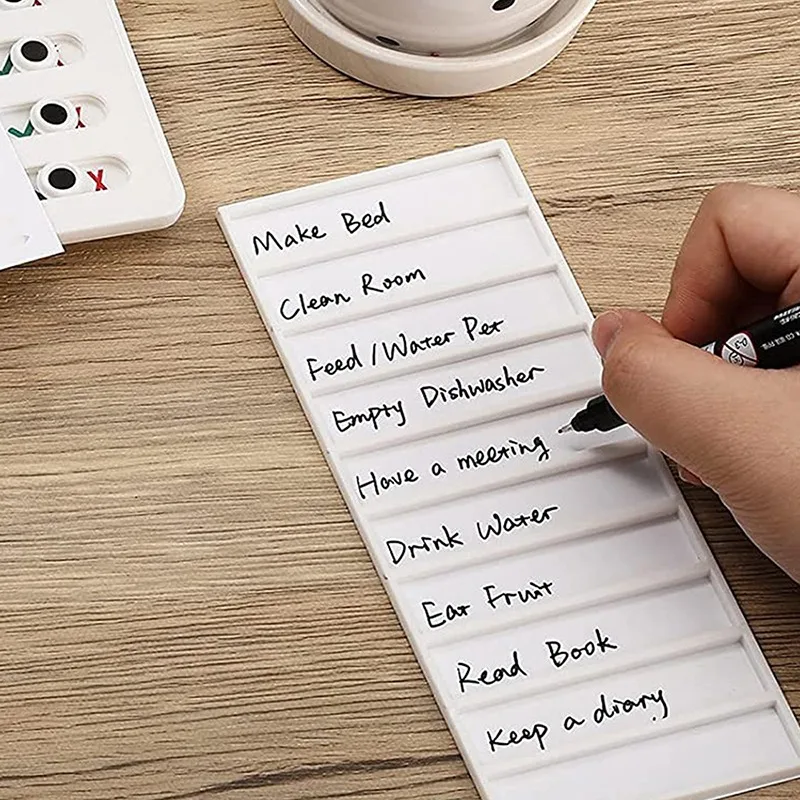 Make Bed
Clean Room
Feed/Water Pet
Empty Dishwasher
Have a meeting
Drink Water
Eat Fruit
Read Book
Keep a diary
X
X
0.3